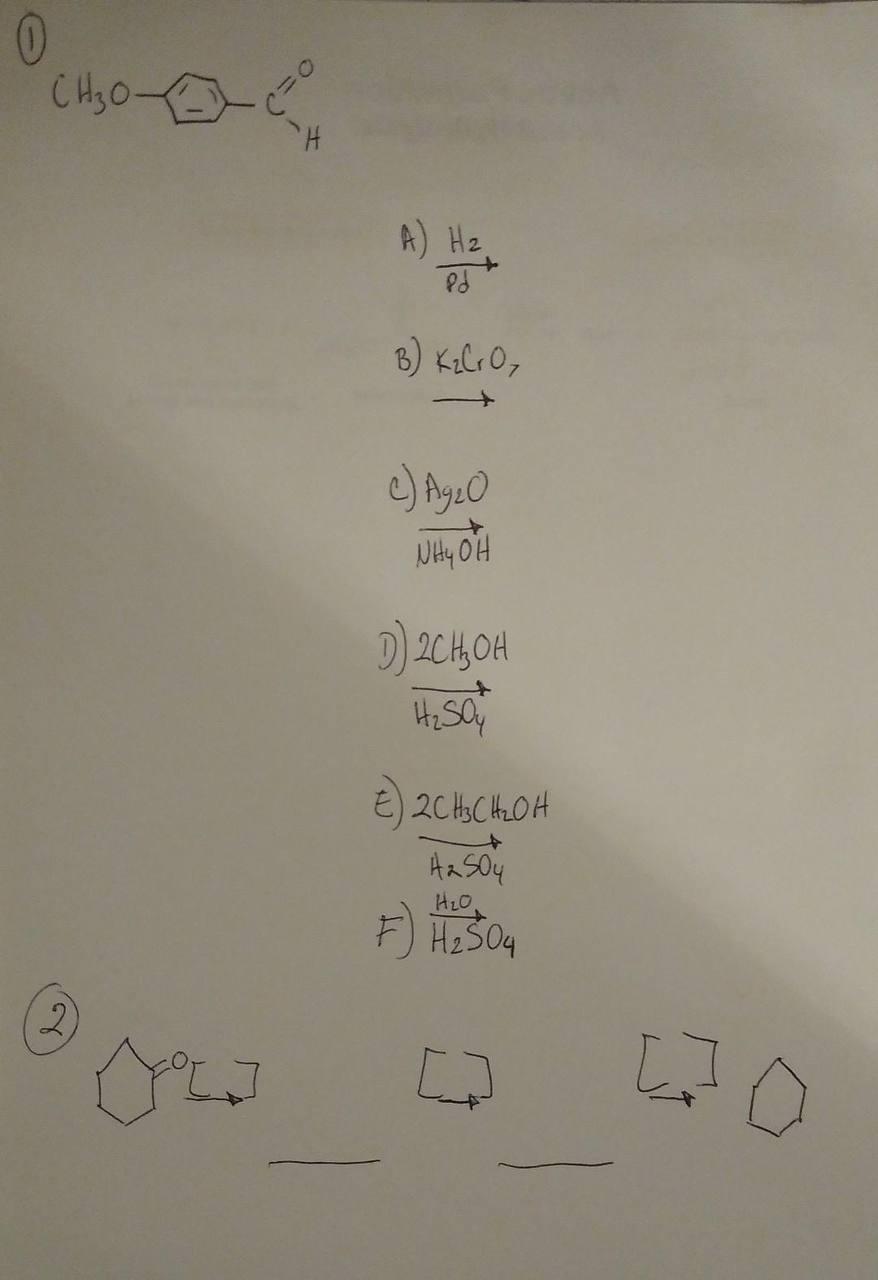 ①
CH3O C O
H
A) H2
Pd
B) K2CrO7
C) Ag2O
NH4OH
D) 2CH3OH
H2SO4
E) 2CH3CH2OH
H2SO4
H2O
F) H2SO4
②
O